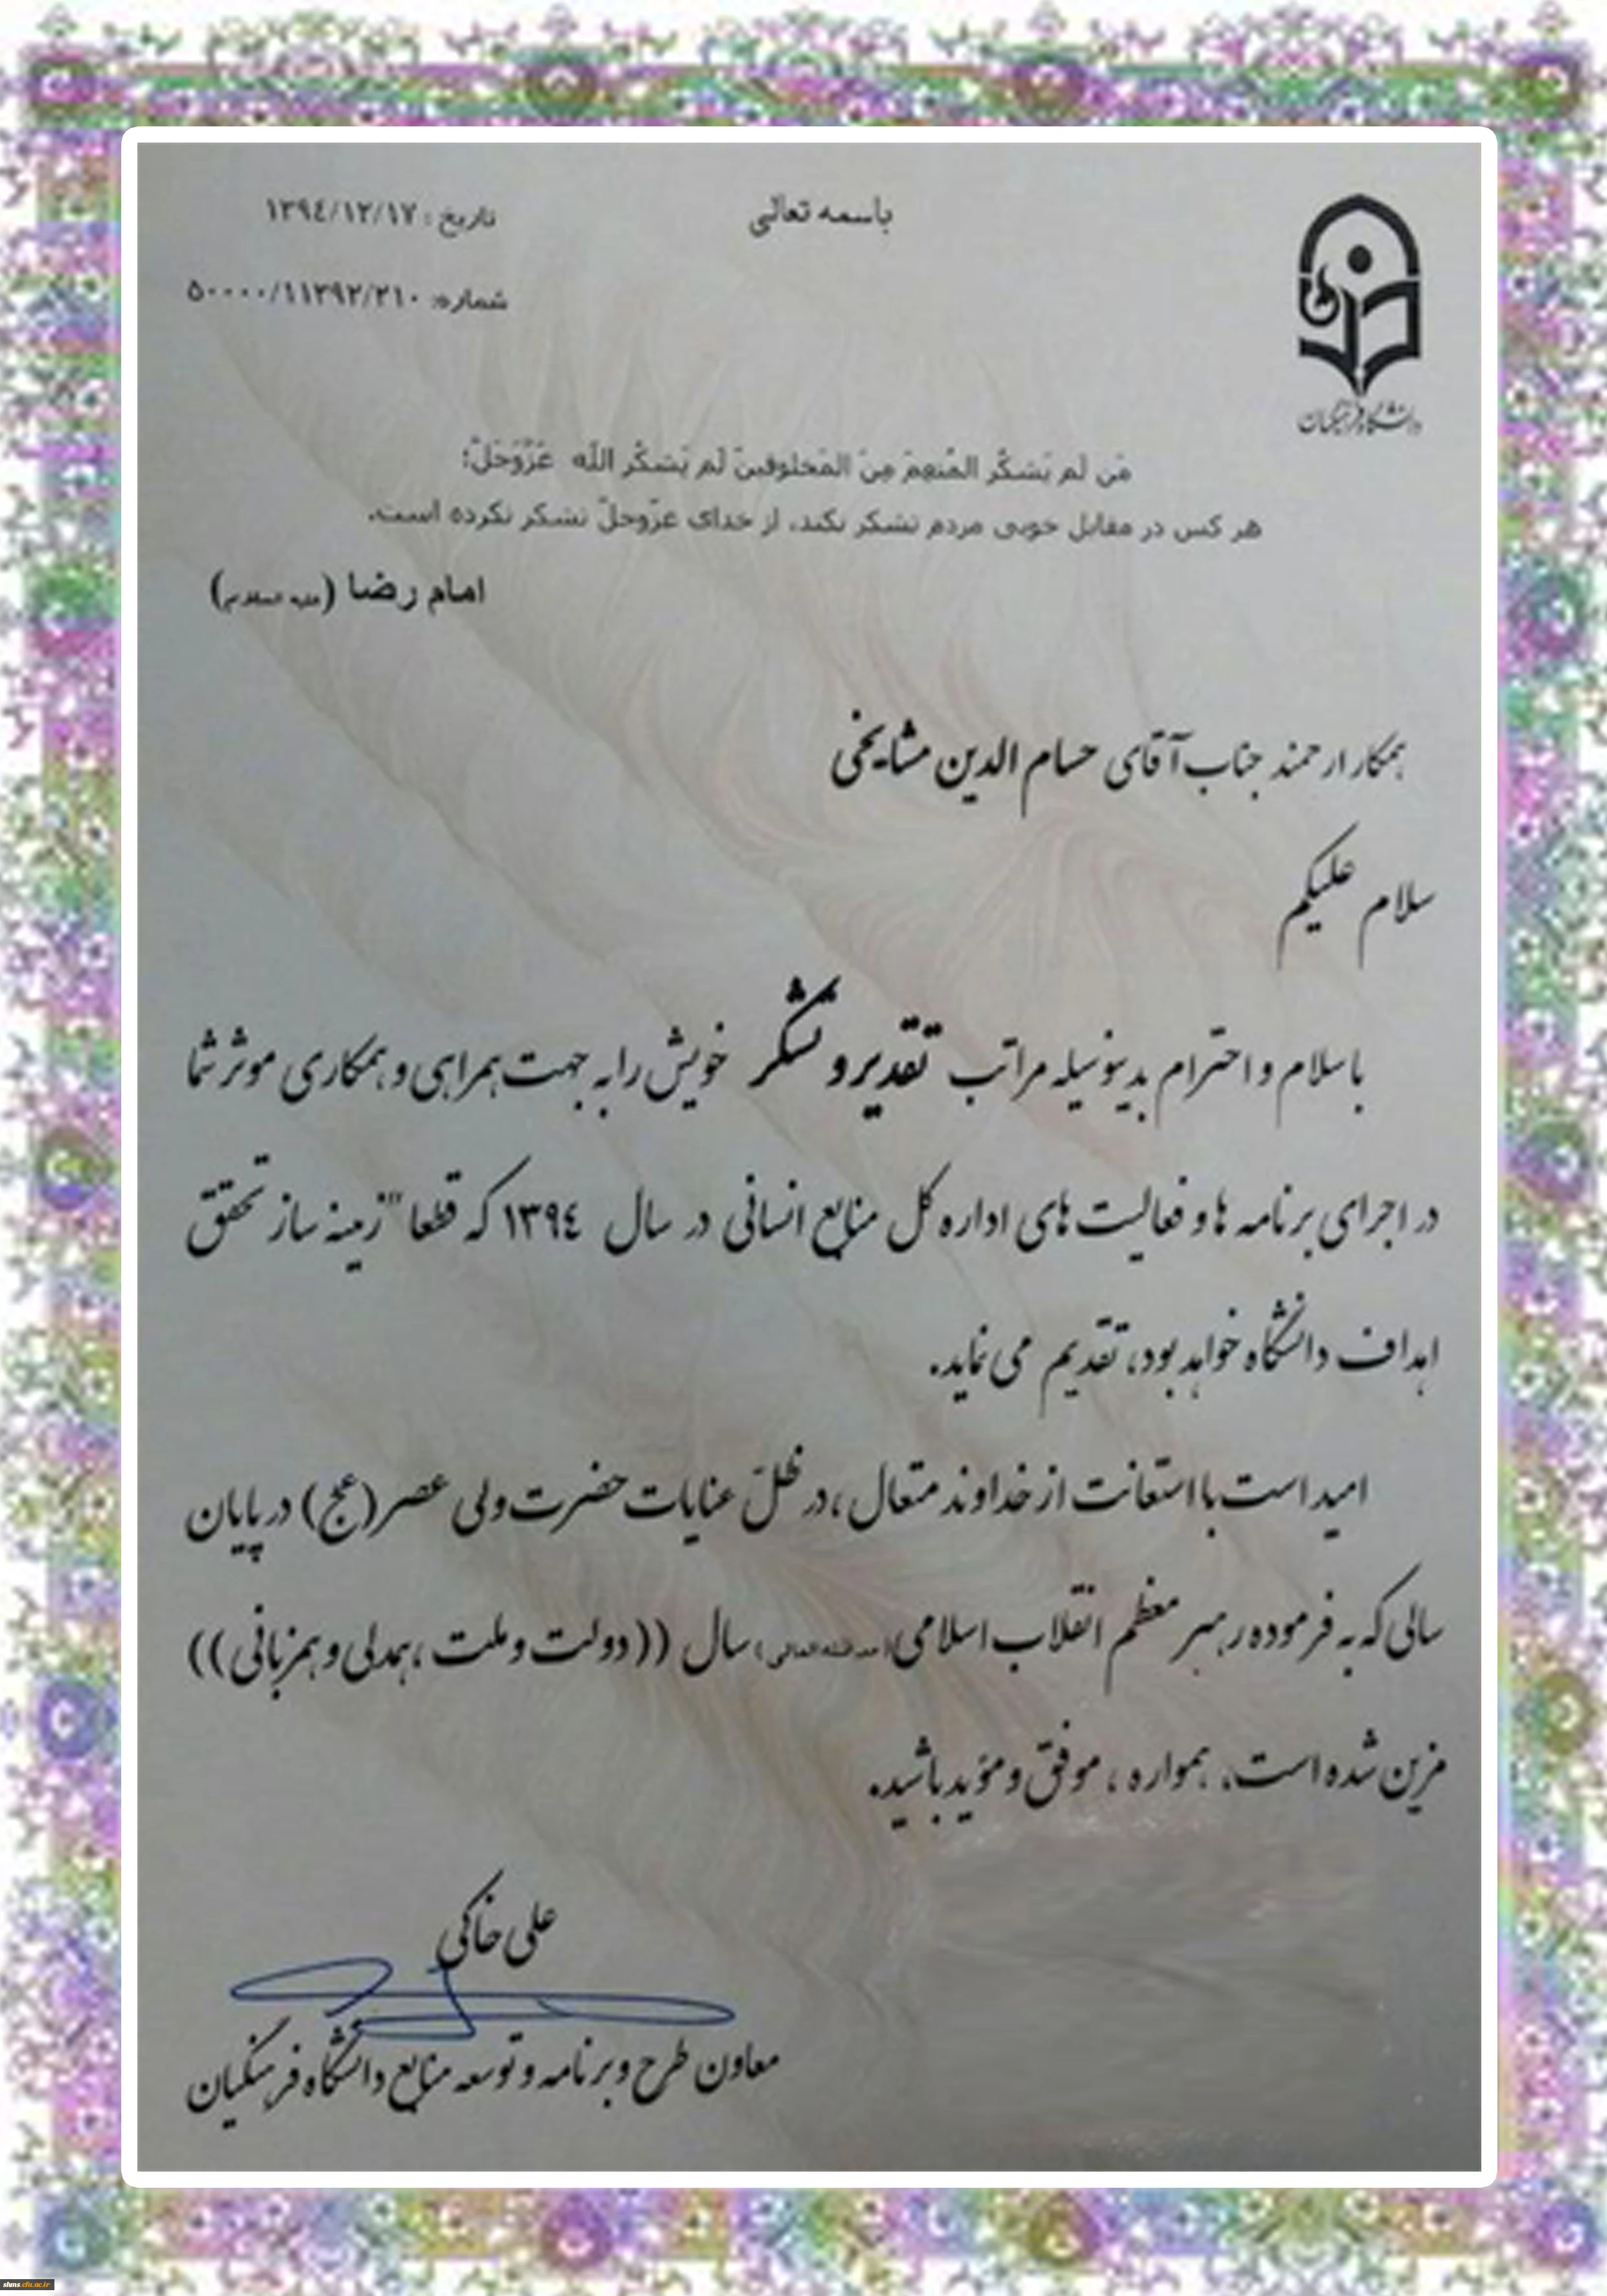 باسمه تعالی
تاریخ : ١٣٩٤/١٢/١٧
شماره: ٥٠٠٠٠/١١٣٩٢/٢١٠
دانشگاه فرهنگیان
مَن لَم یَشکُر المُنعِمَ مِنَ المَخلوقینَ لَم یَشکُر اللّه عَزَّوَجَلَّ؛
هر کس در مقابل خوبی مردم تشکر نکند، از خدای عزّوجلّ تشکر نکرده است.
امام رضا (علیه السلام)
همکار ارجمند جناب آقای حسام الدین مشایخی
سلام علیکم
با سلام و احترام بدینوسیله مراتب تقدیر و تشکر خویش را به جهت همراهی و همکاری موثر شما
در اجرای برنامه ها و فعالیت های اداره کل منابع انسانی در سال ١٣٩٤ که قطعا" زمینه ساز تحقق
اهداف دانشگاه خواهد بود، تقدیم می نماید.
امید است با استعانت از خداوند متعال ، در ظلّ عنایات حضرت ولی عصر (عج) در پایان
سالی که به فرموده رهبر معظم انقلاب اسلامی (مدظله العالی) سال ((دولت و ملت ، همدلی و همزبانی))
مزین شده است، همواره ، موفق و مؤید باشید.
علی خاکی
معاون طرح و برنامه و توسعه منابع دانشگاه فرهنگیان
shms.cfu.ac.ir